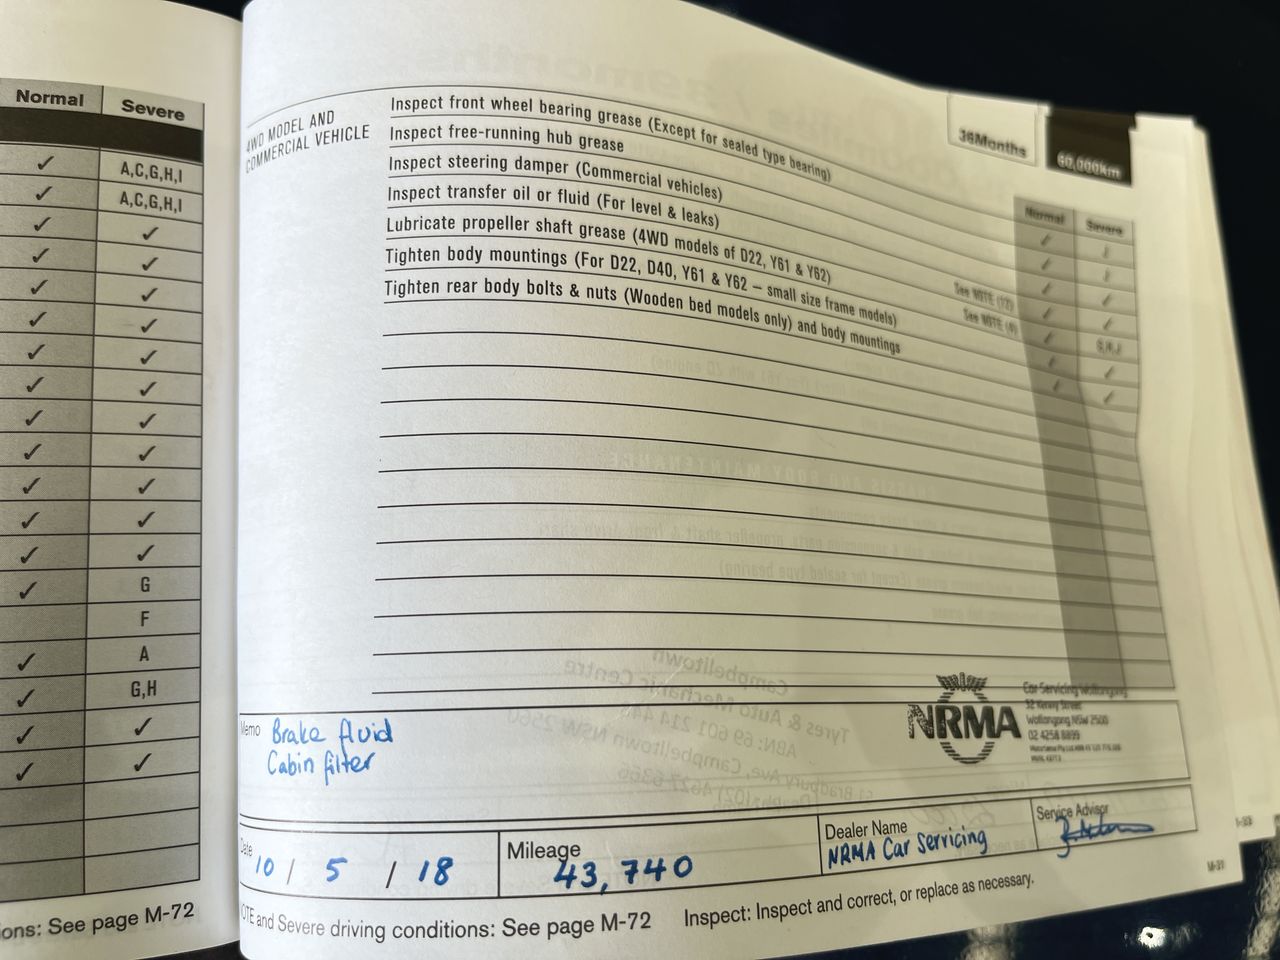 Normal Severe
✓ A,C,G,H,I
✓ A,C,G,H,I
✓ ✓
✓ ✓
✓ ✓
✓ ✓
✓ ✓
✓ ✓
✓ ✓
✓ ✓
✓ ✓
✓ ✓
✓ ✓
✓ G
F
✓ A
✓ G,H
✓ ✓
✓ ✓
ions: See page M-72
36Months 60,000km
Normal Severe
4WD MODEL AND
COMMERCIAL VEHICLE
Inspect front wheel bearing grease (Except for sealed type bearing)
Inspect free-running hub grease
Inspect steering damper (Commercial vehicles)
Inspect transfer oil or fluid (For level & leaks)
Lubricate propeller shaft grease (4WD models of D22, Y61 & Y62) See NOTE (12)
Tighten body mountings (For D22, D40, Y61 & Y62 – small size frame models) See NOTE
Tighten rear body bolts & nuts (Wooden bed models only) and body mountings
Memo Brake fluid
Cabin filter
NRMA
Car Servicing Wollongong
Wollongong NSW 2500
02 4258 8899
Date 10 / 5 / 18
Mileage 43,740
Dealer Name
NRMA Car Servicing
Service Advisor
NOTE and Severe driving conditions: See page M-72 Inspect: Inspect and correct, or replace as necessary.
M-31